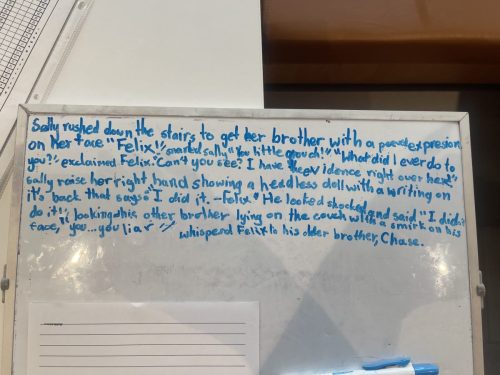 Sally rushed down the stairs to get her brother with a expression
on her face "Felix!" snarled sally "You little grouch!" "What did I ever do to
you?" exclaimed Felix. "Can't you see? I have the evidence right over here!"
Sally raise her right hand showing a headless doll with a writing on
it's back that says "I did it. -Felix" He looked shocked and said "I didn't
do it!" looking this other brother lying on the couch with a smirk on his
face, "you...you liar" whisperd Felix to his older brother, Chase.